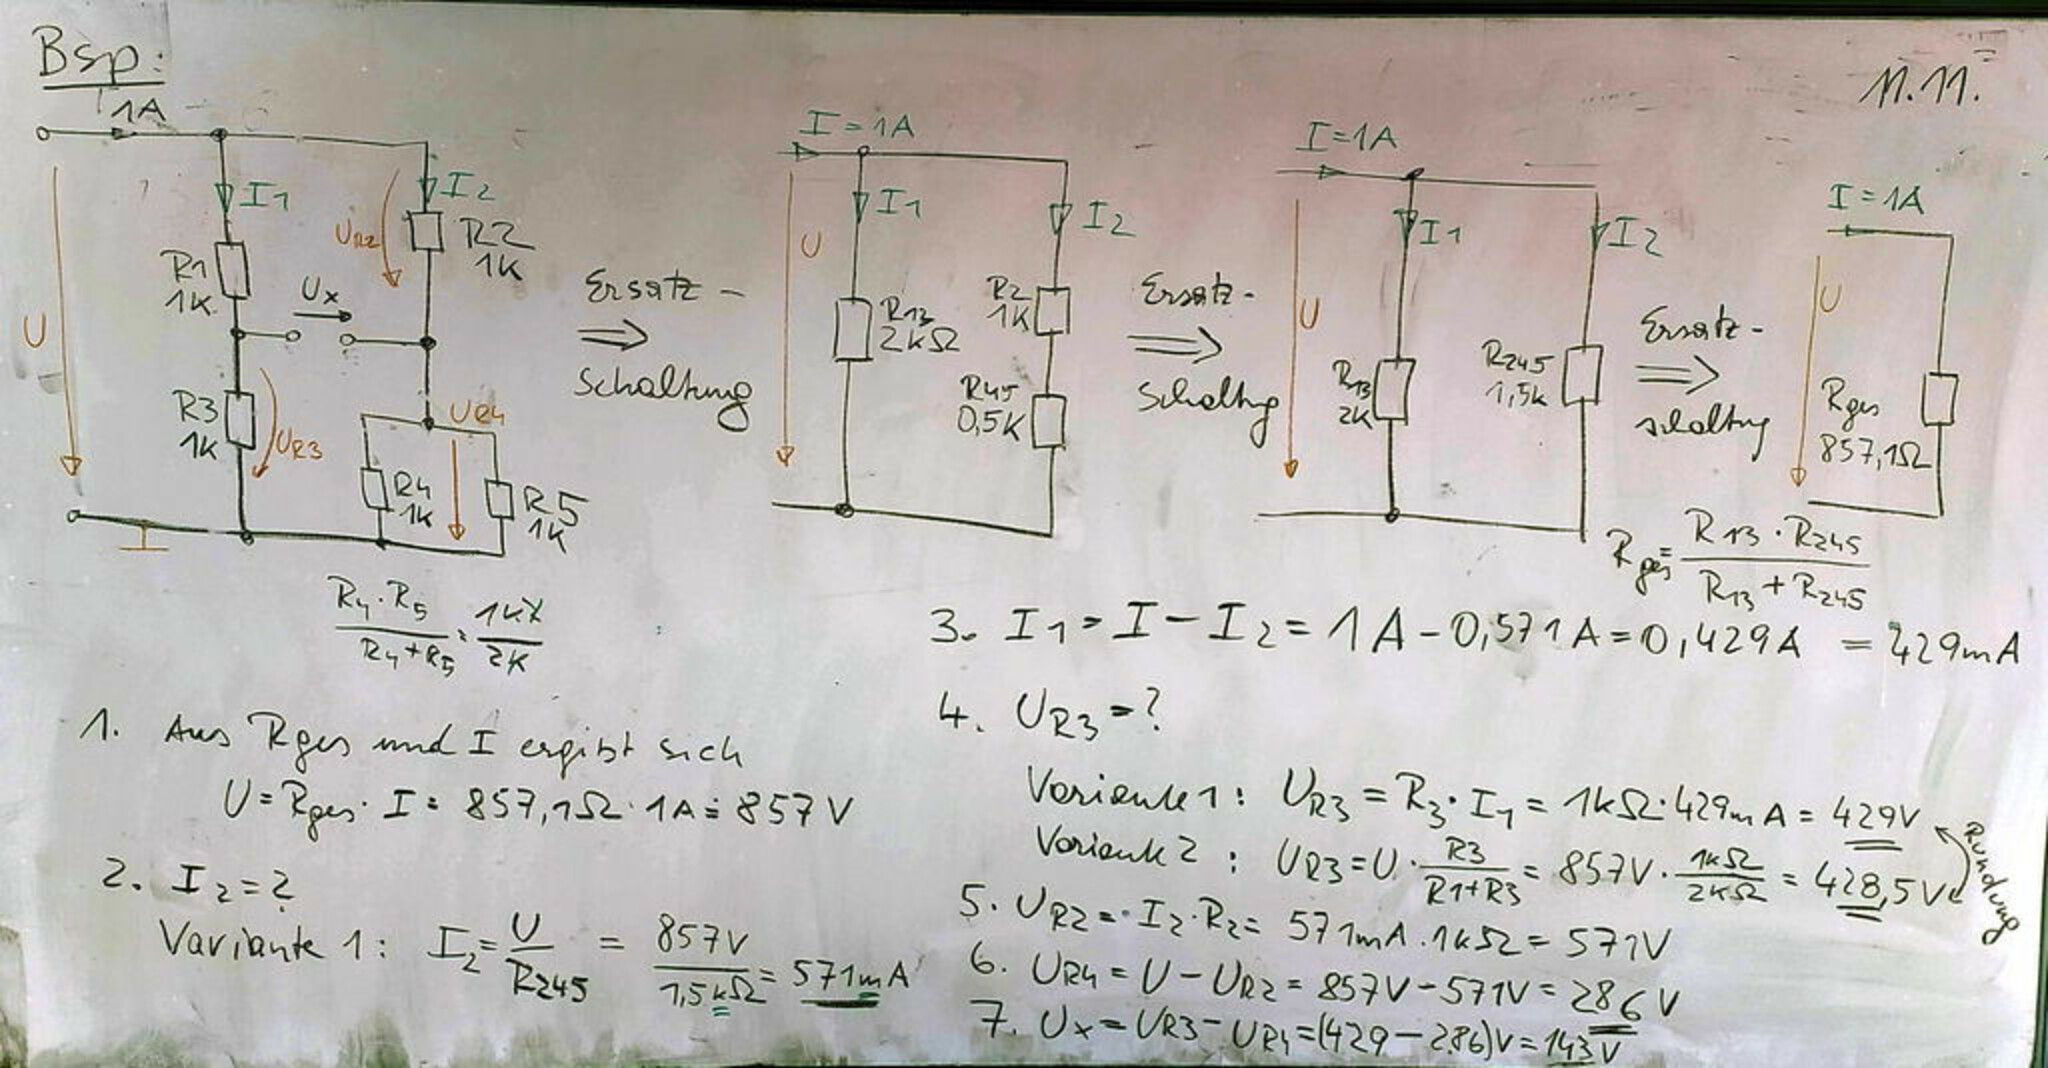 Bsp:
11.11.
1A
I1
I2
UR2
R2
1K
R1
1K
Ux
U
R3
1K
UR3
UR4
R4
1K
R5
1K
Ersatz-
schaltung
I=1A
I1
I2
U
R13
2kΩ
R2
1K
R45
0,5K
Ersatz-
schaltung
I=1A
I1
I2
U
R13
2K
R245
1,5k
Ersatz-
schaltung
I=1A
U
Rges
857,1Ω
Rges = (R13 · R245) / (R13 + R245)
(R4 · R5) / (R4 + R5) = 1K² / 2K
1. Aus Rges und I ergibt sich
U = Rges · I = 857,1Ω · 1A = 857V
2. I2 = ?
Variante 1: I2 = U / R245 = 857V / 1,5kΩ = 571mA
3. I1 = I - I2 = 1A - 0,571A = 0,429A = 429mA
4. UR3 = ?
Variante 1: UR3 = R3 · I1 = 1kΩ · 429mA = 429V
Variante 2: UR3 = U · R3 / (R1+R3) = 857V · 1kΩ / 2kΩ = 428,5V
Rundung
5. UR2 = I2 · R2 = 571mA · 1kΩ = 571V
6. UR4 = U - UR2 = 857V - 571V = 286V
7. Ux = UR3 - UR4 = (429 - 286)V = 143V